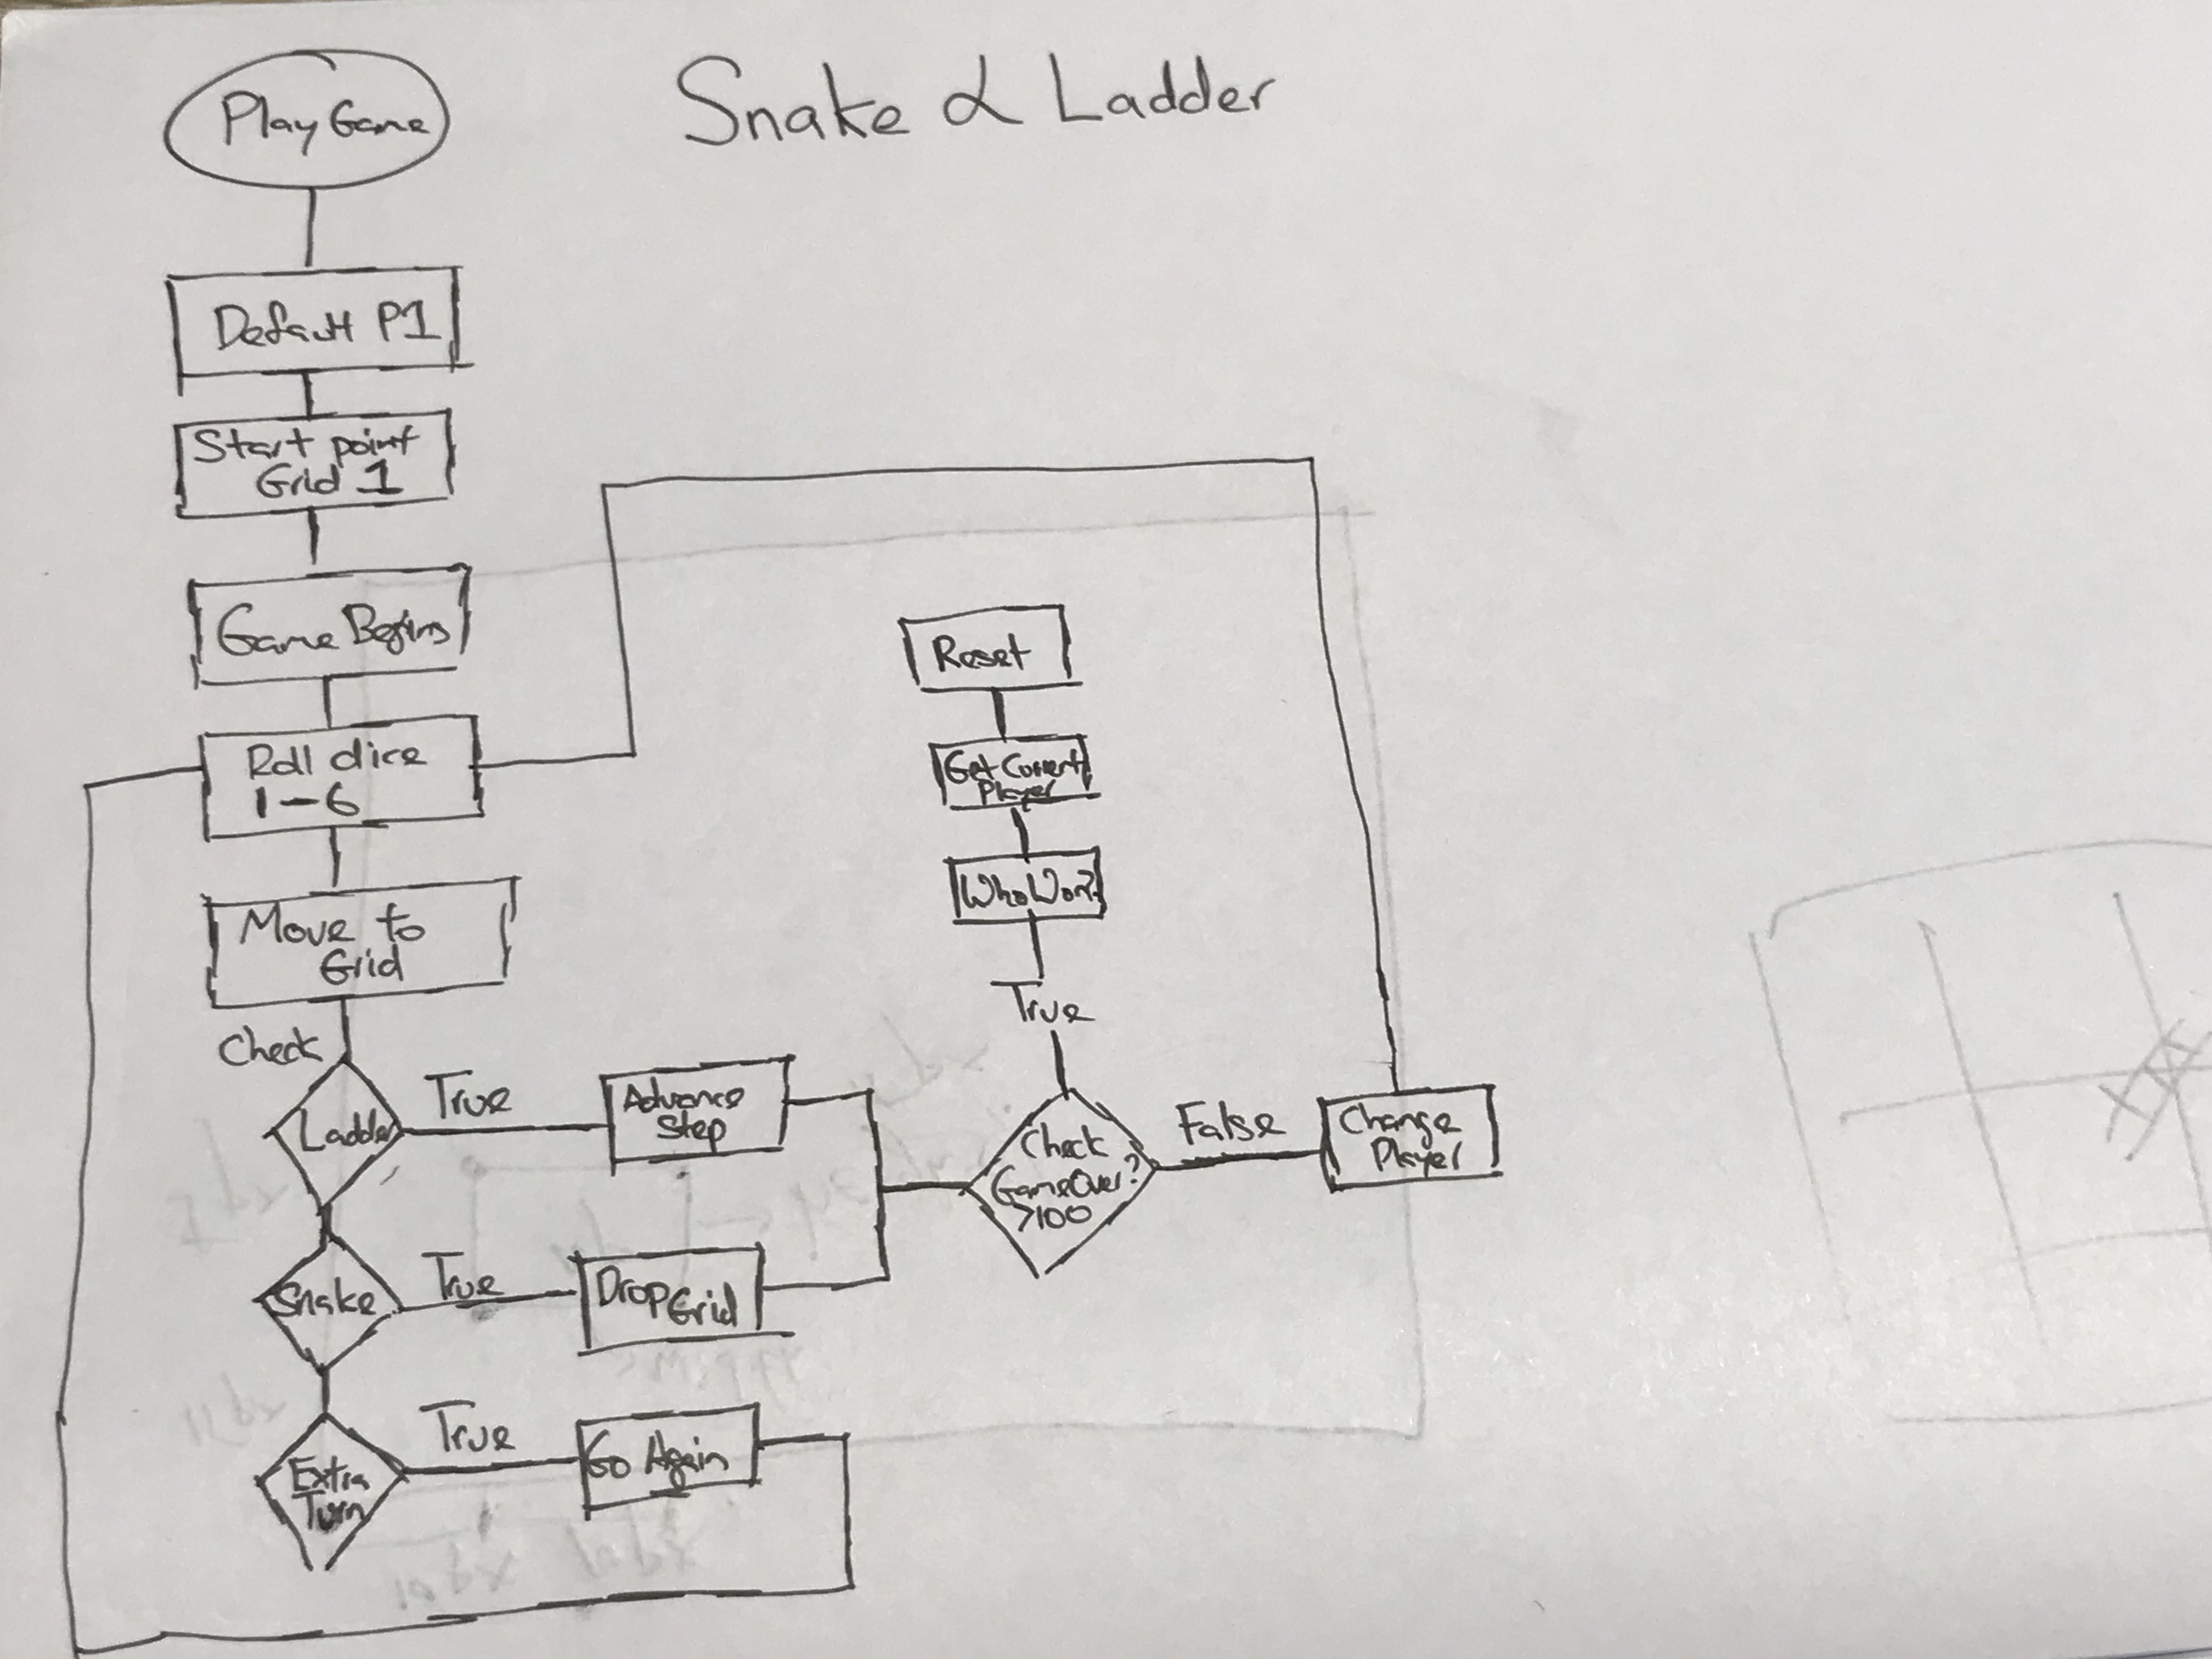 Play Game
Snake & Ladder
Default P1
Start point
Grid 1
Game Begins
Roll dice
1-6
Move to
Grid
Check
Ladder
True
Advance
Step
Snake
True
Drop Grid
Extra
Turn
True
Go Again
Reset
Get Current
Player
Who Won?
True
Check
GameOver?
>100
False
Change
Player